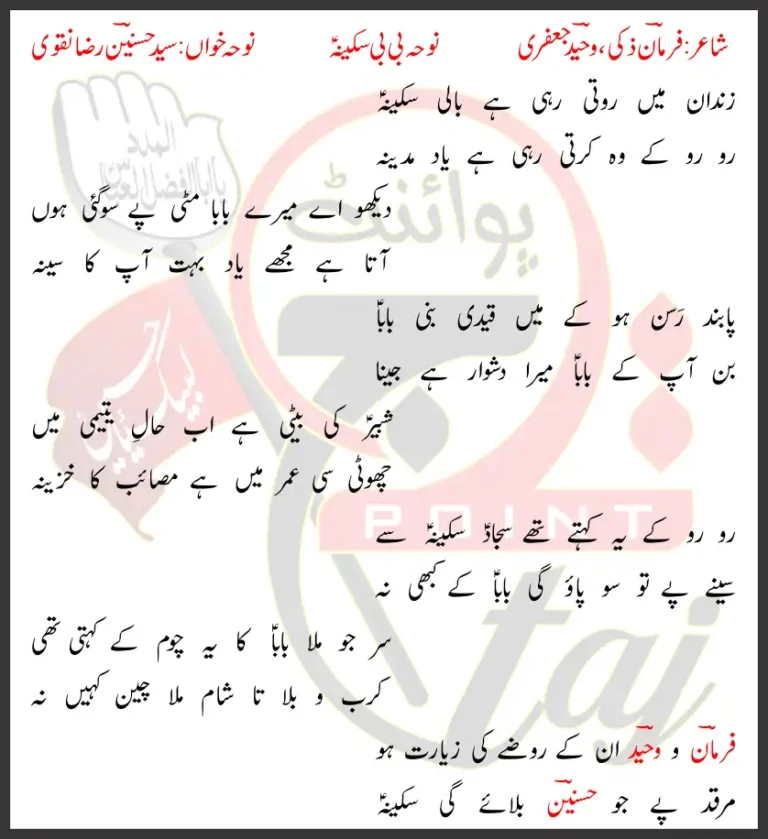 شاعر: فرمانؔ ذکی، وحیدؔ جعفری نوحہ بی بی سکینہؑ نوحہ خواں: سید حسنینؔ رضا نقوی
زندان میں روتی رہی ہے بالی سکینہؑ
رو رو کے وہ کرتی رہی ہے یاد مدینہ
دیکھو اے میرے بابا مٹی پے سوگئی ہوں
آتا ہے مجھے یاد بہت آپ کا سینہ
پابند رَسن ہو کے میں قیدی بنی باباؑ
بن آپ کے باباؑ میرا دشوار ہے جینا
شبیرؑ کی بیٹی ہے اب حالِ یتیمی میں
چھوٹی سی عمر میں ہے مصائب کا خزینہ
رو رو کے یہ کہتے تھے سجادؑ سکینہؑ سے
سینے پے تو سو پاؤ گی باباؑ کے کبھی نہ
سر جو ملا باباؑ کا یہ چوم کے کہتی تھی
کرب و بلا تا شام ملا چین کہیں نہ
فرمانؔ و وحیدؔ ان کے روضے کی زیارت ہو
مرقد پے جو حسنینؔ بلائے گی سکینہؑ
المدد
یا ابا الفضل العباس
لبیک یا حسین
پوائنٹ
تاج
POINT
taj